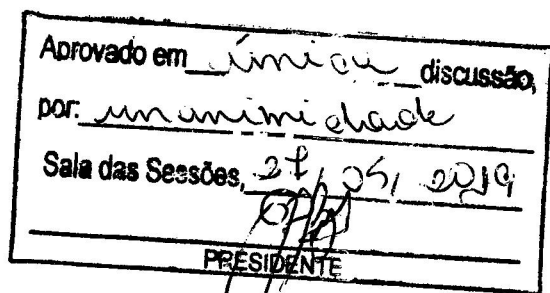 Aprovado em única discussão,
por: unanimidade
Sala das Sessões, 27/05/2019
PRESIDENTE